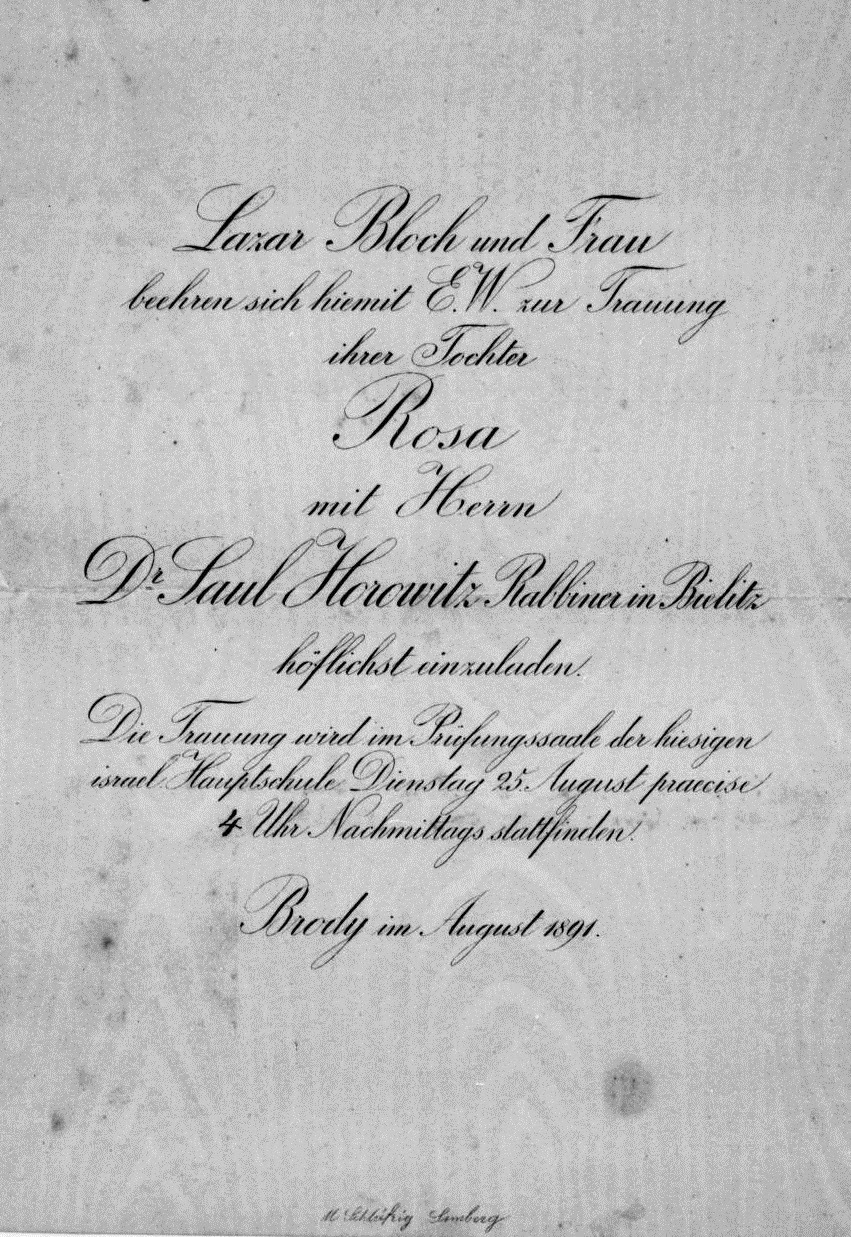 Lazar Bloch und Frau
beehren sich hiemit E.W. zur Trauung
ihrer Tochter
Rosa
mit Herrn
Dr. Saul Horowitz Rabbiner in Bielitz
höflichst einzuladen.
Die Trauung wird im Prüfungssaale der hiesigen
israel. Hauptschule Dienstag 25. August praecise
4 Uhr Nachmittags stattfinden.
Brody im August 1891.
M